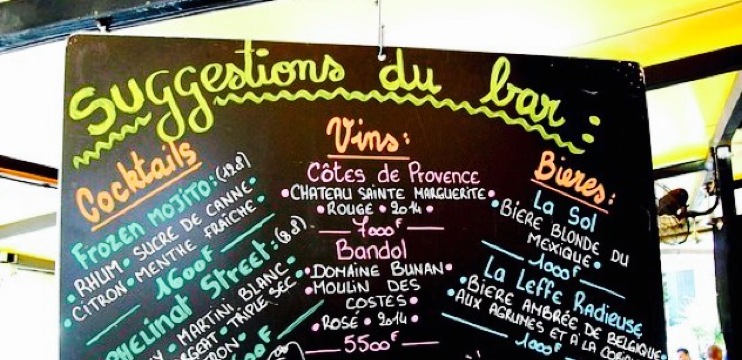 Suggestions du bar :
Cocktails
Frozen Mojito : (12cl)
• Rhum • Sucre de canne •
• Citron • Menthe fraîche •
1600F
Street : (8cl)
Martini Blanc •
Triple Sec •
Vins :
Côtes de Provence
• Chateau Sainte Marguerite •
• Rouge • 2014 •
7000F
Bandol
• Domaine Bunan •
• Moulin des
Costes •
• Rosé • 2014 •
5500F
Bieres :
La Sol
• Bière blonde du
Mexique •
1000F
La Leffe Radieuse
• Bière ambrée de Belgique
aux agrumes et a la
1000F